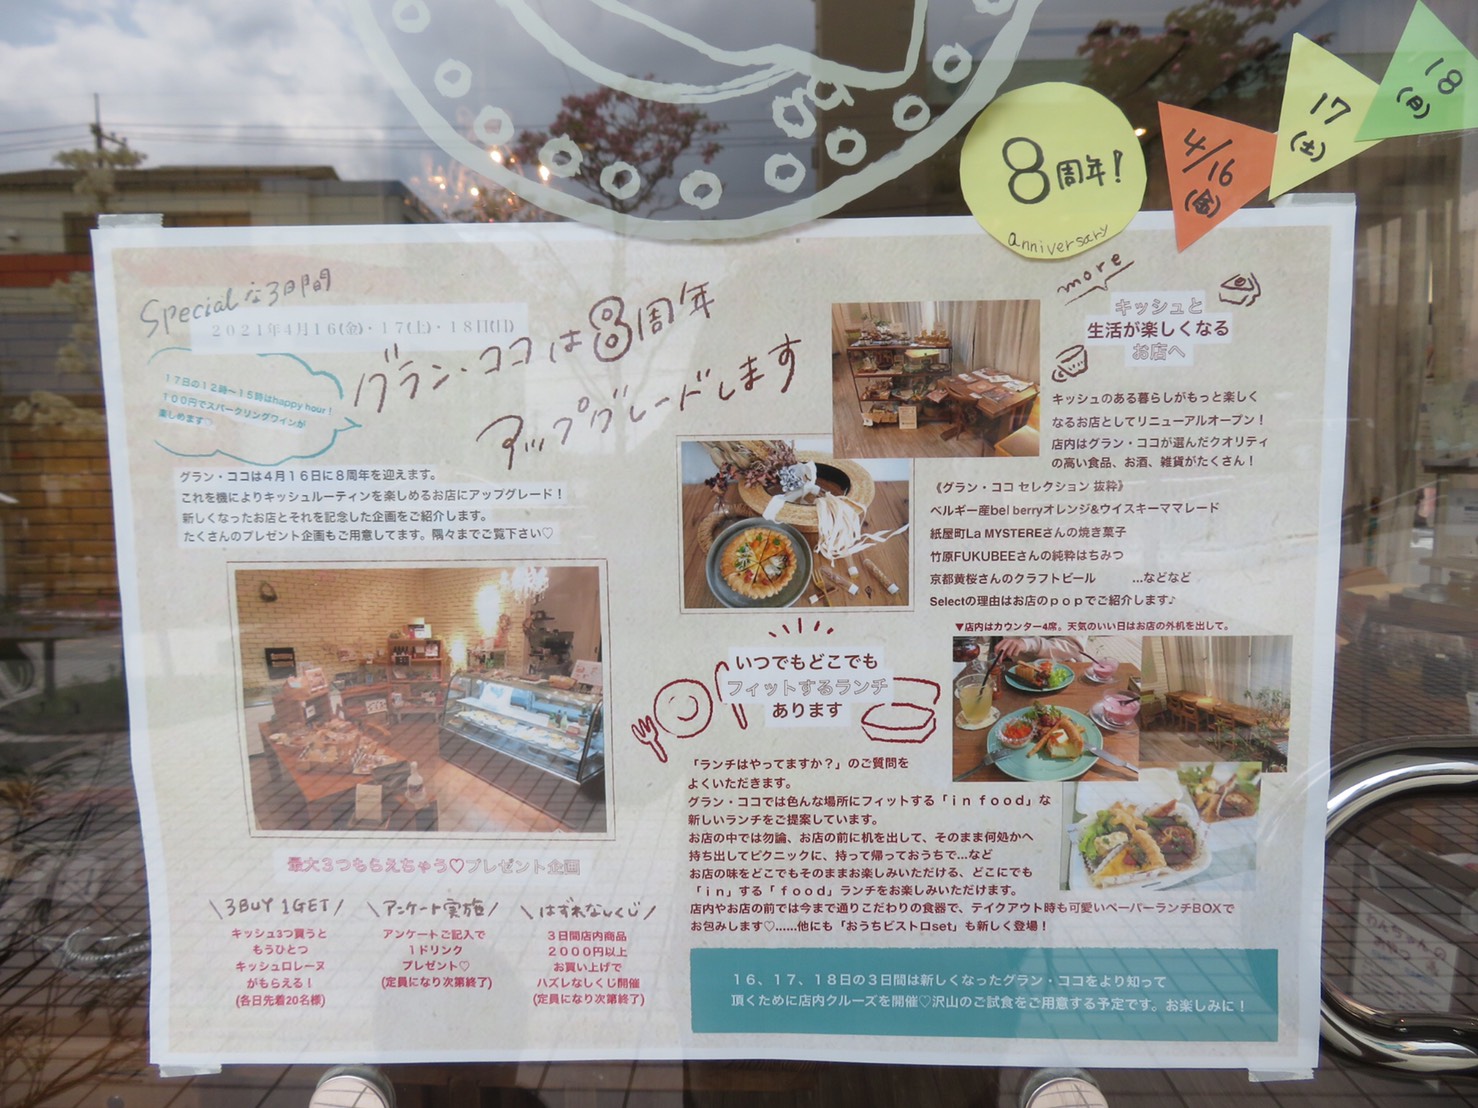 8周年!
anniversary
4/16
(金)
17
(土)
18
(日)
Specialな3日間
2021年4月16(金)・17(土)・18日(日)
グラン・ココは8周年
アップグレードします
17日の12時〜15時はhappy hour!
100円でスパークリングワインが
楽しめます♡
グラン・ココは4月16日に8周年を迎えます。
これを機によりキッシュルーティンを楽しめるお店にアップグレード!
新しくなったお店とそれを記念した企画をご紹介します。
たくさんのプレゼント企画もご用意してます。隅々までご覧下さい♡
最大3つもらえちゃう♡プレゼント企画
\3BUY 1GET/
キッシュ3つ買うと
もうひとつ
キッシュロレーヌ
がもらえる!
(各日先着20名様)
\アンケート実施/
アンケートご記入で
1ドリンク
プレゼント♡
(定員になり次第終了)
\はずれなしくじ/
3日間店内商品
2000円以上
お買い上げで
ハズレなしくじ開催
(定員になり次第終了)
more
キッシュと
生活が楽しくなる
お店へ
キッシュのある暮らしがもっと楽しく
なるお店としてリニューアルオープン!
店内はグラン・ココが選んだクオリティ
の高い食品、お酒、雑貨がたくさん!
《グラン・ココ セレクション 抜粋》
ベルギー産bel berryオレンジ&ウイスキーママレード
紙屋町La MYSTEREさんの焼き菓子
竹原FUKUBEEさんの純粋はちみつ
京都黄桜さんのクラフトビール ...などなど
Selectの理由はお店のpopでご紹介します♪
▼店内はカウンター4席。天気のいい日はお店の外机を出して。
いつでもどこでも
フィットするランチ
あります
「ランチはやってますか?」のご質問を
よくいただきます。
グラン・ココでは色んな場所にフィットする「in food」な
新しいランチをご提案しています。
お店の中では勿論、お店の前に机を出して、そのまま何処かへ
持ち出してピクニックに、持って帰っておうちで...など
お店の味をどこでもそのままお楽しみいただける、どこにでも
「in」する「food」ランチをお楽しみいただけます。
店内やお店の前では今まで通りこだわりの食器で、テイクアウト時も可愛いペーパーランチBOXで
お包みします♡......他にも「おうちビストロset」も新しく登場!
16、17、18日の3日間は新しくなったグラン・ココをより知って
頂くために店内クルーズを開催♡沢山のご試食をご用意する予定です。お楽しみに!
わんちゃんの
おやつ